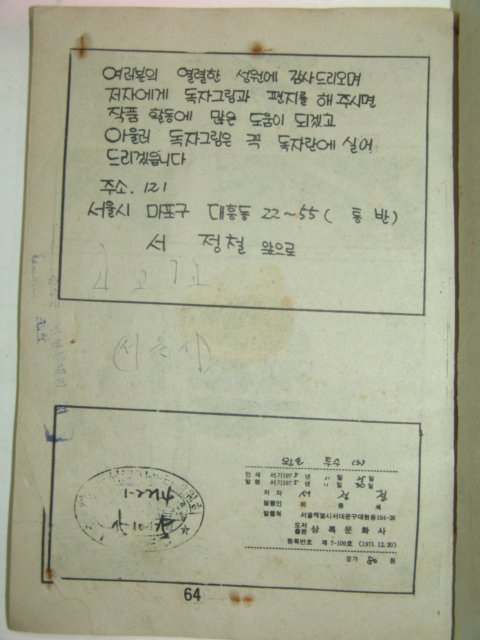 여러분의 열렬한 성원에 감사드리오며
저자에게 독자그림과 편지를 해 주시면
작품 활동에 많은 도움이 되겠고
아울러 독자그림은 꼭 독자란에 실어
드리겠읍니다
주소. 121
서울시 마포구 대흥동 22~55 ( 통 반)
서 정철 앞으로
(서울시)
특수
인쇄 서기1975년 11월 25일
발행 서기1975년 11월 30일
저자 서 정 철
발행인 이 종 세
발행처 서울특별시서대문구대현동104-26
도서출판 상록문화사
등록번호 제 7-109호 (1971.12.20)
정가 80 원
64